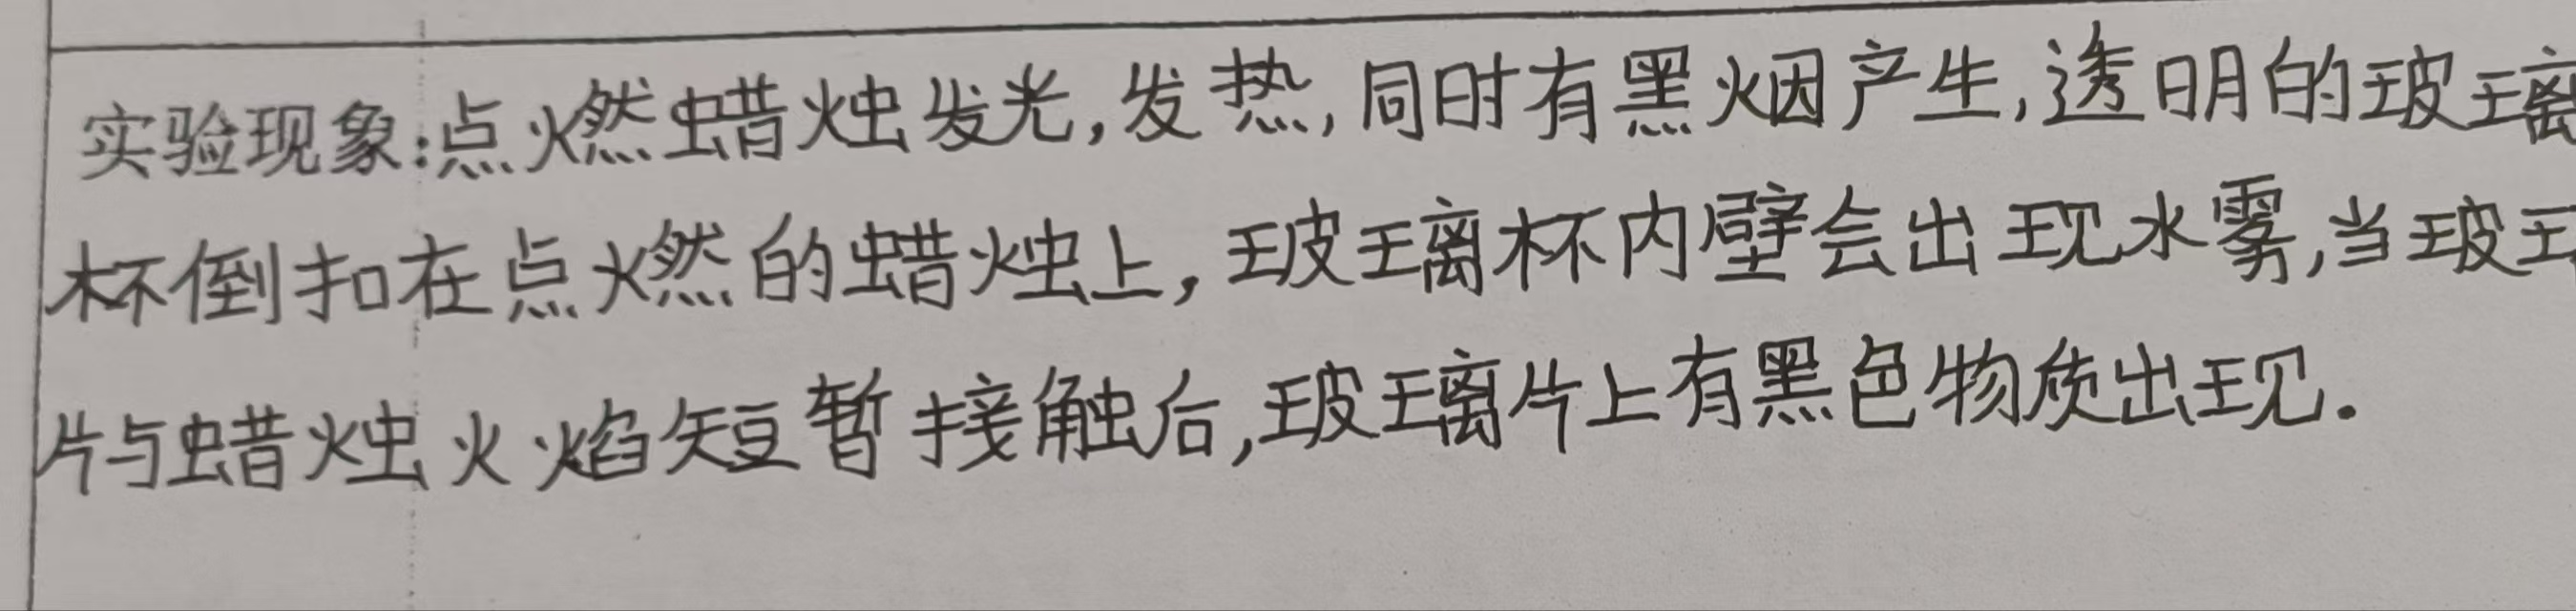 实验现象:点燃蜡烛发光,发热,同时有黑烟产生,透明的玻璃
杯倒扣在点燃的蜡烛上,玻璃杯内壁会出现水雾,当玻
片与蜡烛火焰短暂接触后,玻璃片上有黑色物质出现.